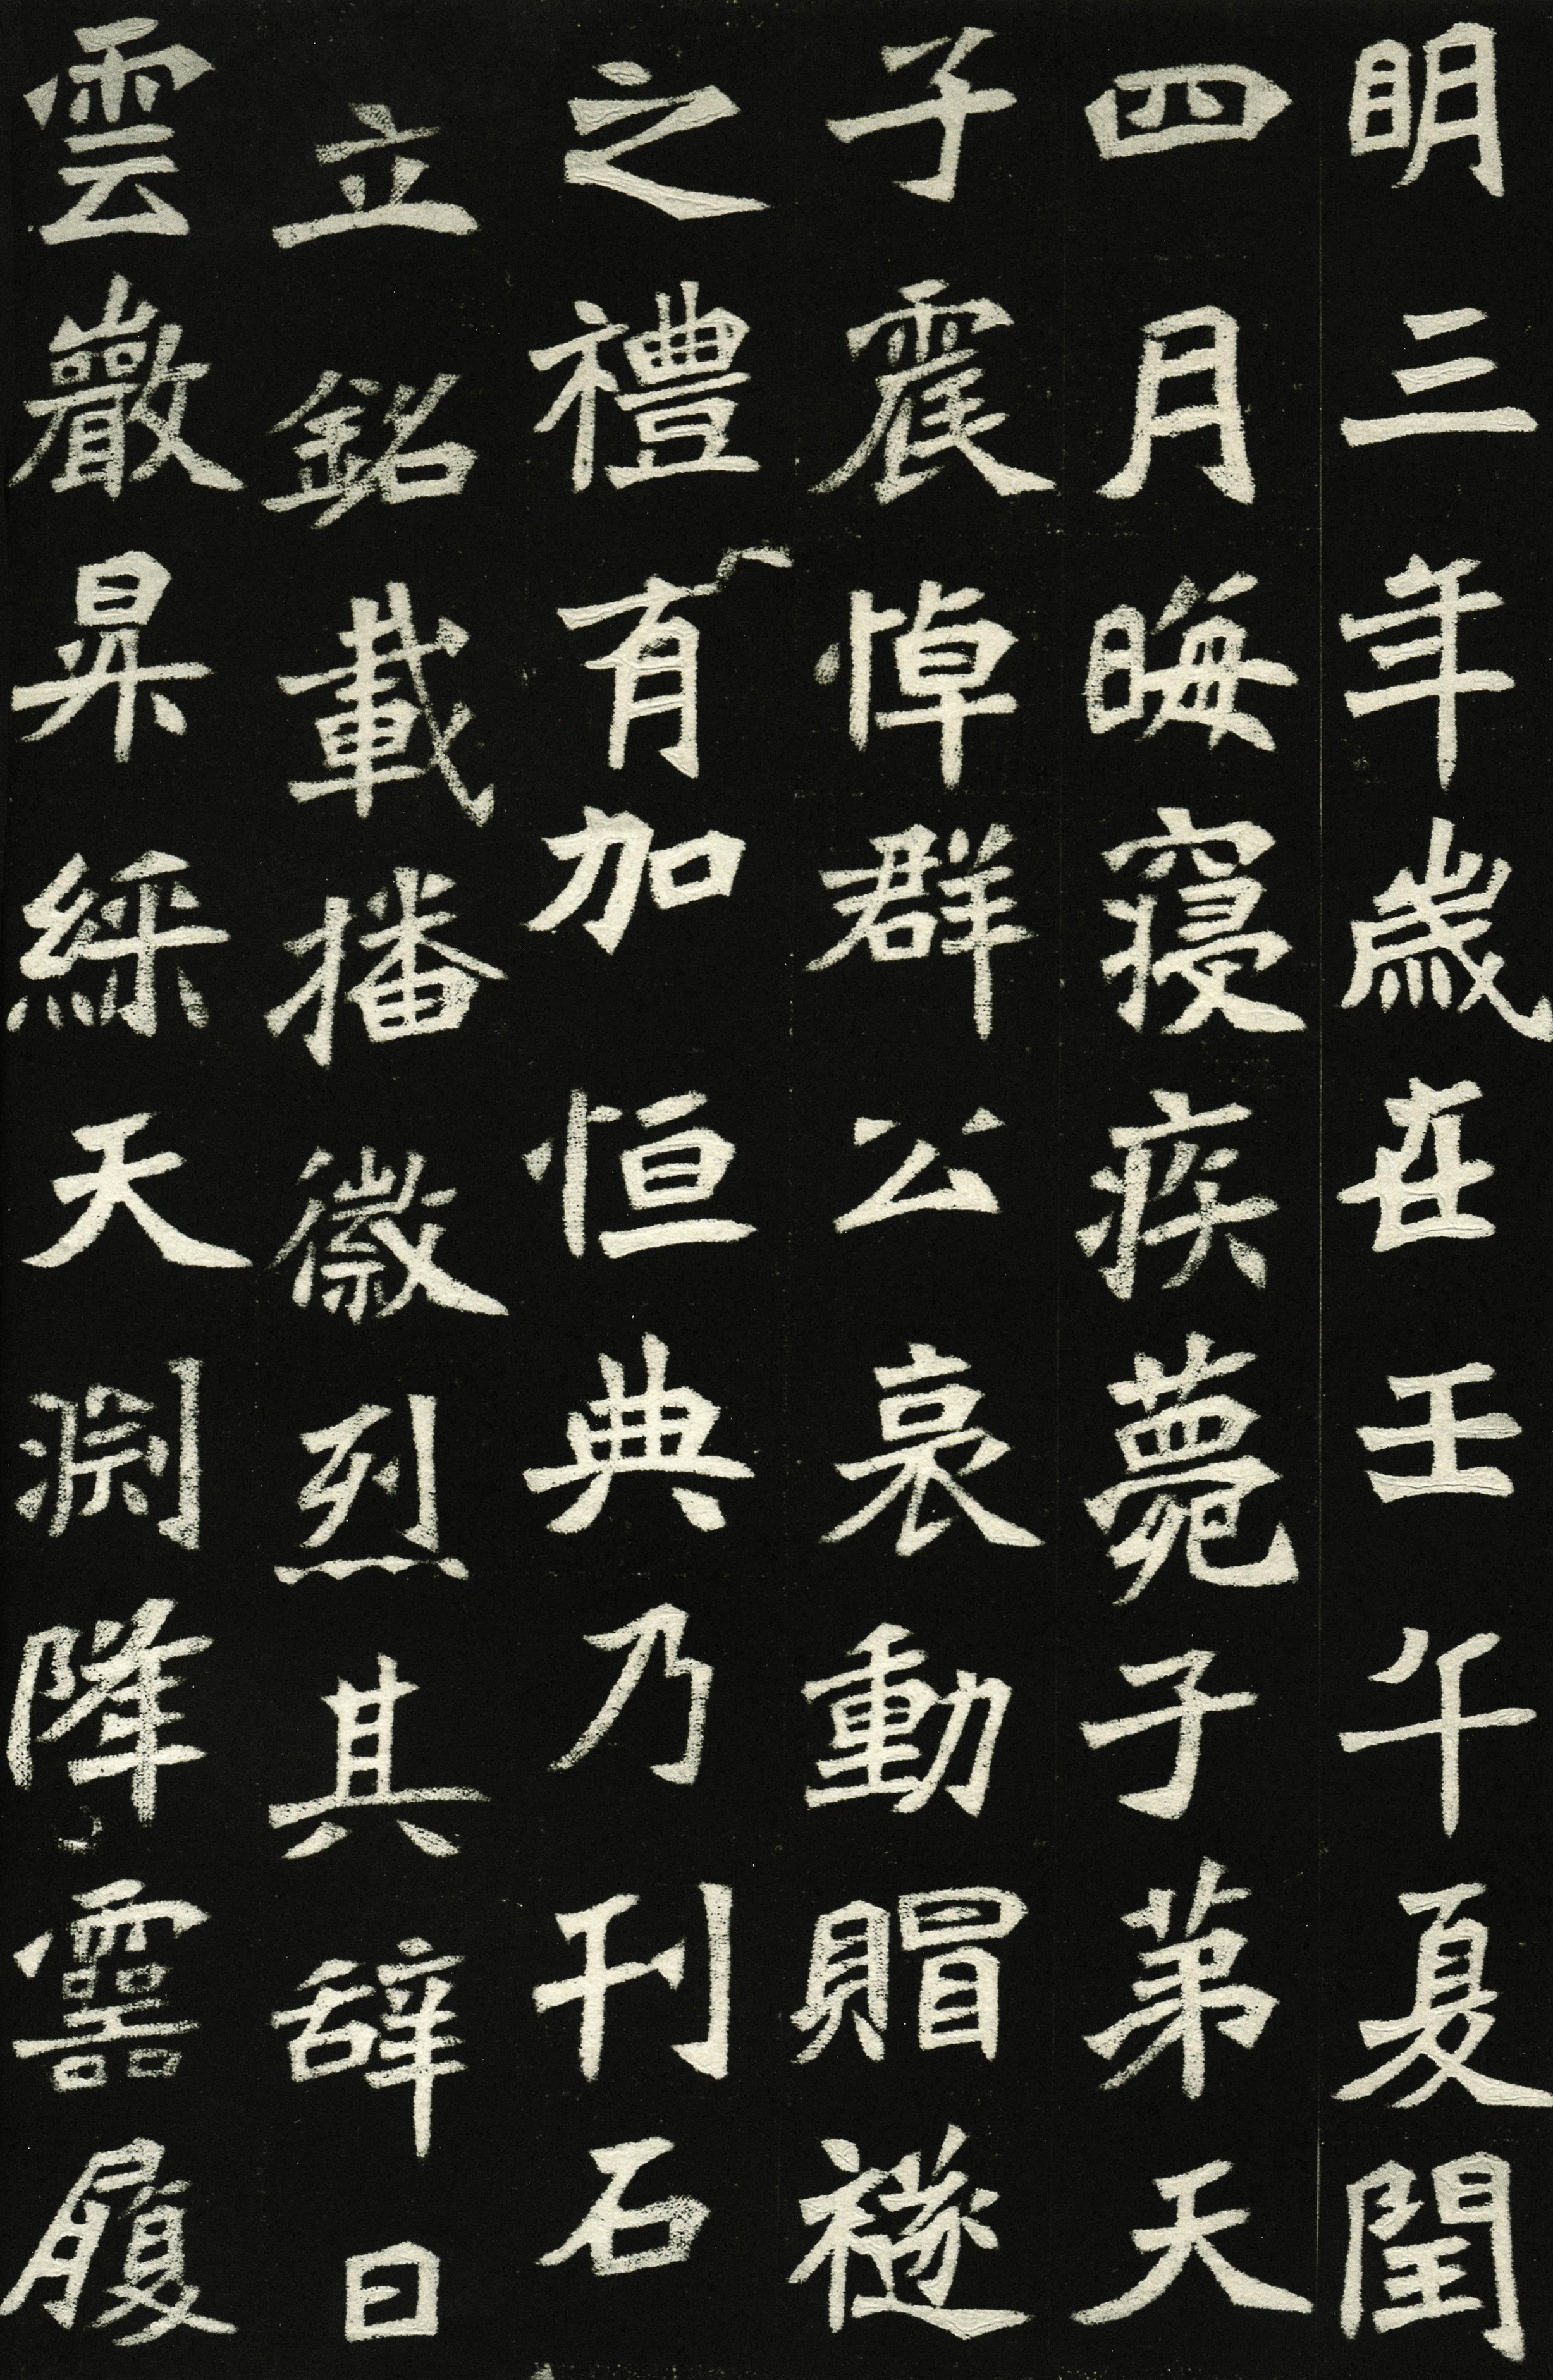 明三年歲在壬午夏閏
四月晦寑疾薨子弟天
子震悼群公哀動賵襚
之禮有加恒典乃刊石
立銘載播徽烈其辞曰
雲巖昇綵天淵降靈履